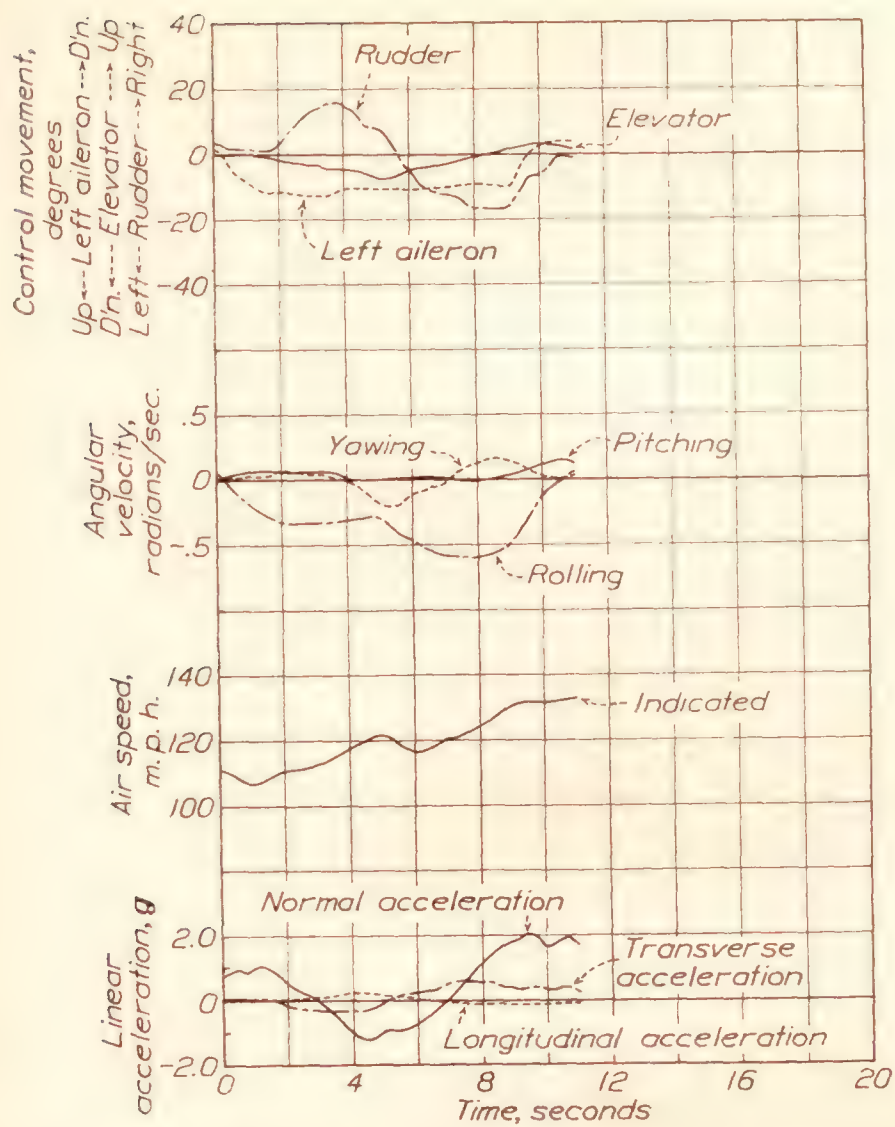 Control movement,
degrees
Up<---Left aileron--->D'n.
D'n.<----Elevator---->Up
Left<---Rudder--->Right
40
20
0
-20
-40
Rudder
Elevator
Left aileron
Angular
velocity,
radians/sec.
.5
0
-.5
Yawing
Pitching
Rolling
Air speed,
m.p.h.
140
120
100
Indicated
Linear
acceleration, g
2.0
0
-2.0
Normal acceleration
Transverse
acceleration
Longitudinal acceleration
0 4 8 12 16 20
Time, seconds